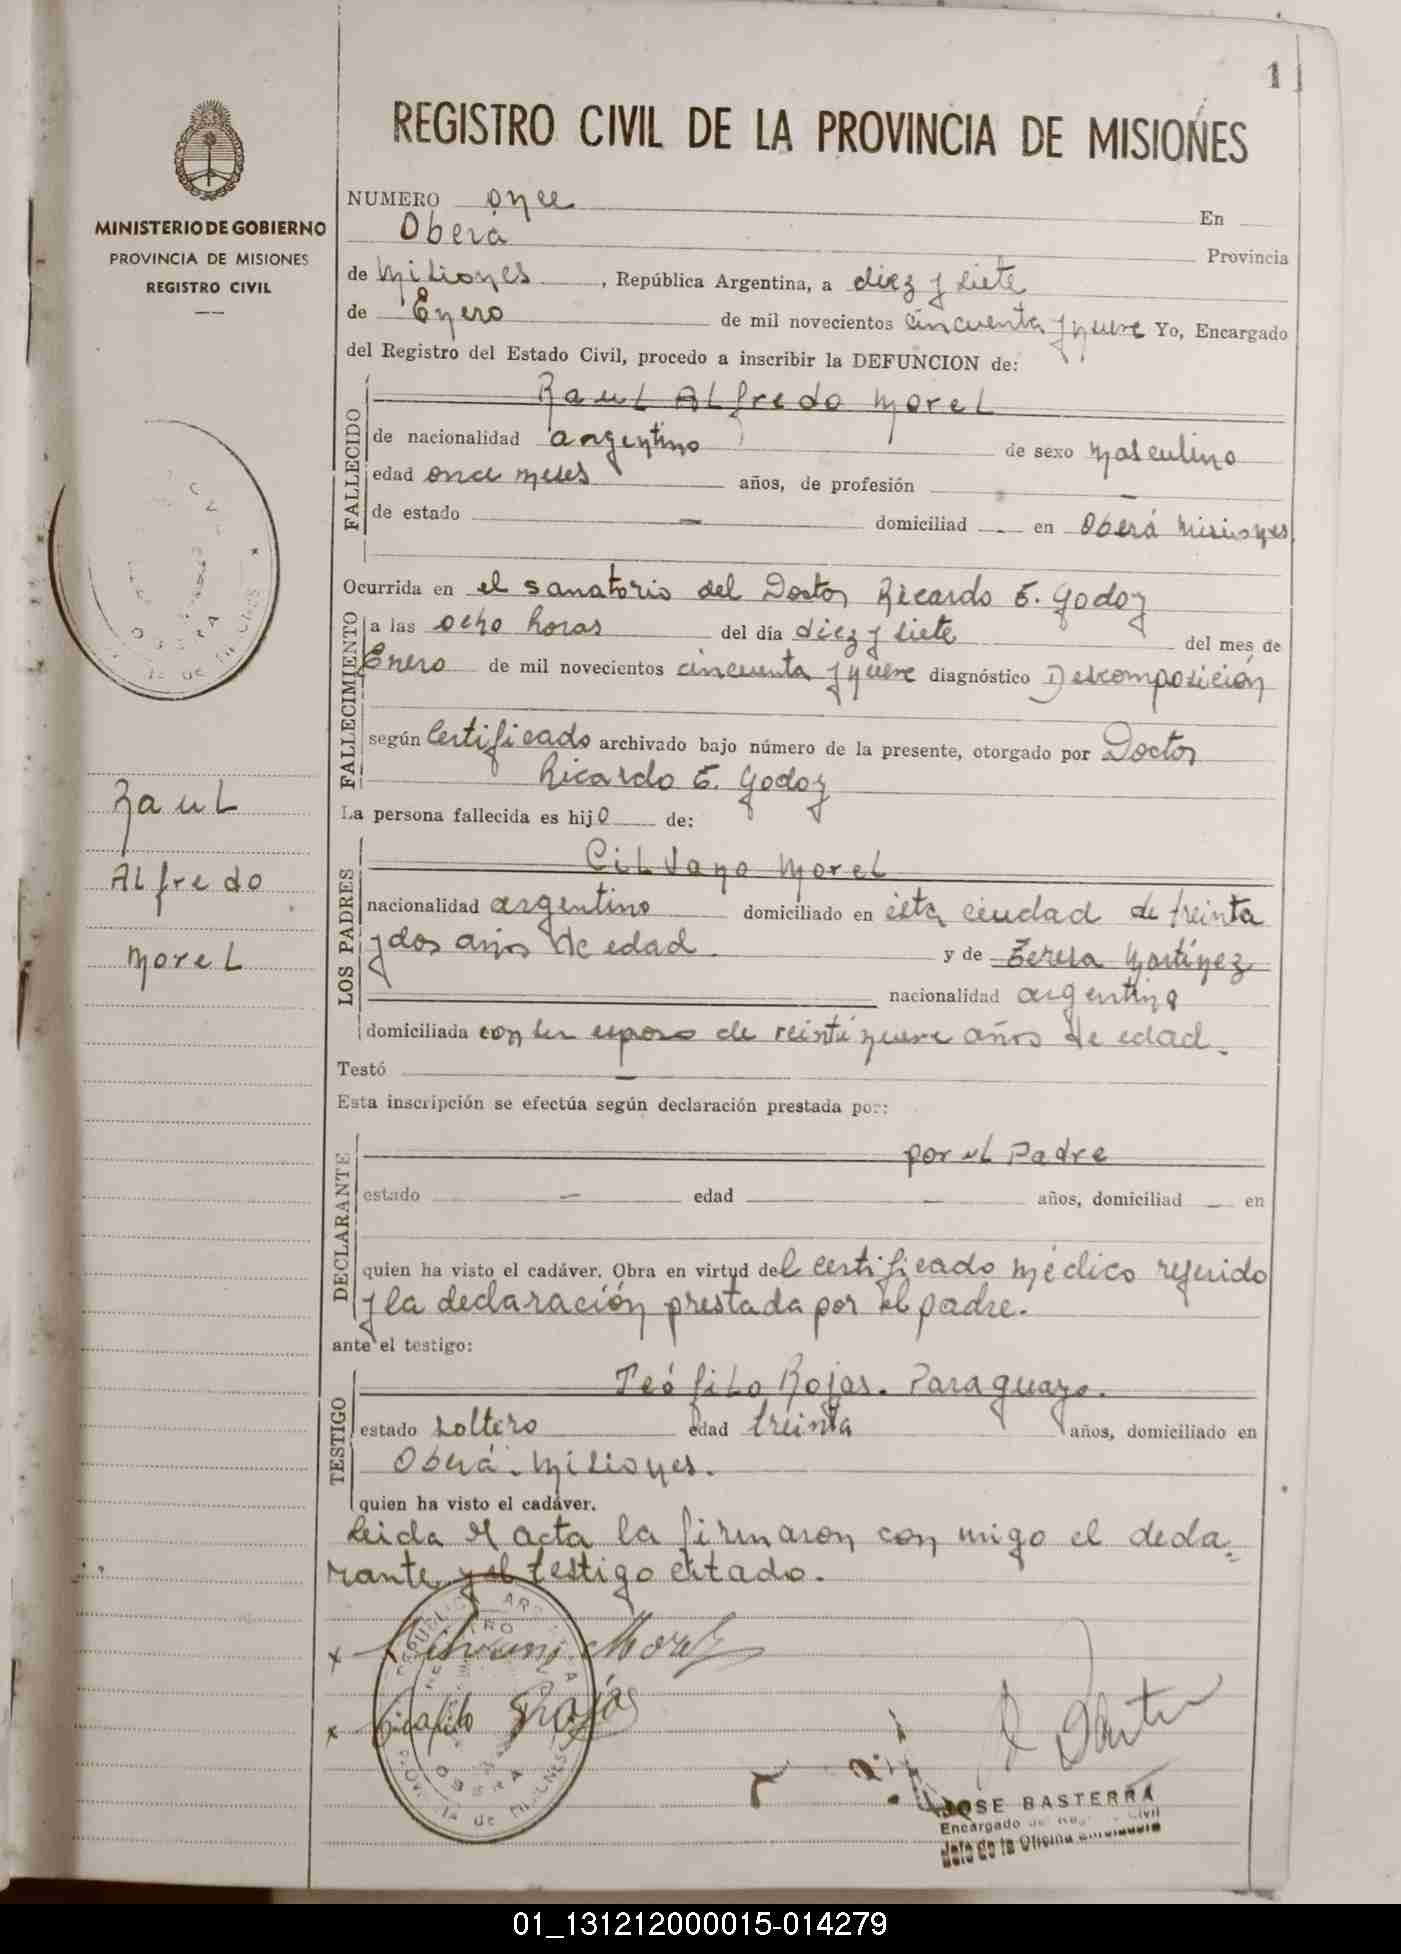 1
REGISTRO CIVIL DE LA PROVINCIA DE MISIONES
MINISTERIO DE GOBIERNO
PROVINCIA DE MISIONES
REGISTRO CIVIL
NUMERO once En
Oberá Provincia
de Misiones, República Argentina, a diez y siete
de Enero de mil novecientos cincuenta y nueve Yo, Encargado
del Registro del Estado Civil, procedo a inscribir la DEFUNCION de:
FALLECIDO
Raul Alfredo Morel
de nacionalidad argentino de sexo masculino
edad once meses años, de profesión —
de estado — domiciliad — en Oberá Misiones
Ocurrida en el sanatorio del Doctor Ricardo E. Godoy
FALLECIMIENTO
a las ocho horas del día diez y siete del mes de
Enero de mil novecientos cincuenta y nueve diagnóstico Descomposición
según Certificado archivado bajo número de la presente, otorgado por Doctor
Ricardo E. Godoy
La persona fallecida es hijo de:
LOS PADRES
Cilvano Morel
nacionalidad argentino domiciliado en esta ciudad de treinta
y dos años de edad y de Teresa Martínez
nacionalidad argentina
domiciliada con su esposo de veintinueve años de edad.
Testó —
Esta inscripción se efectúa según declaración prestada por:
DECLARANTE
por el Padre
estado — edad — años, domiciliad — en
quien ha visto el cadáver. Obra en virtud del certificado médico referido
y la declaración prestada por el padre.
ante el testigo:
TESTIGO
Teófilo Rojas. Paraguayo.
estado soltero edad treinta años, domiciliado en
Oberá. Misiones.
quien ha visto el cadáver.
Leida el acta la firmaron con migo el decla-
rante y el testigo citado.
Raul
Alfredo
Morel
x Silvano Morel
x Teofilo Rojas
OBERA
JOSE BASTERRA
Encargado de Civil
Jefe de la Oficina
01_131212000015-014279